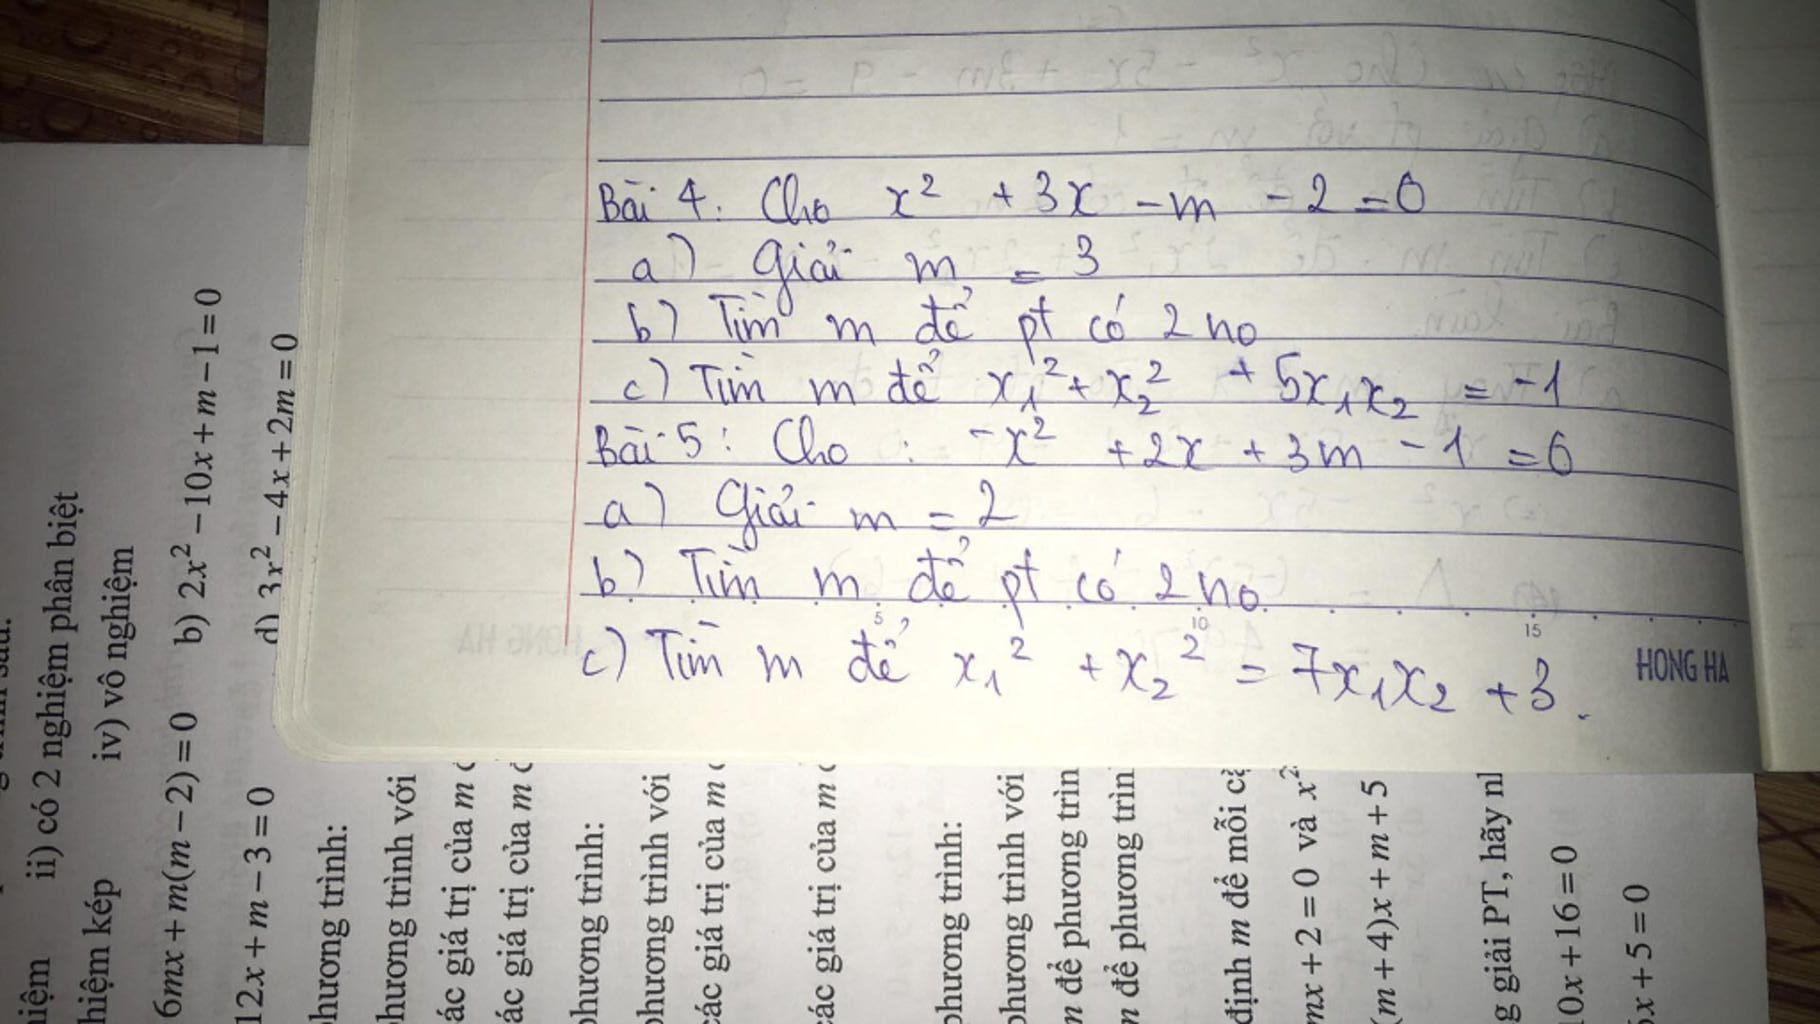 Bài 4. Cho x² + 3x - m - 2 = 0
a) Giải m = 3
b) Tìm m để pt có 2 no
c) Tìm m để x₁² + x₂² + 5x₁x₂ = -1
Bài 5: Cho : -x² + 2x + 3m - 1 = 0
a) Giải m = 2
b) Tìm m để pt có 2 no
5 10 15
c) Tìm m để x₁² + x₂² = 7x₁x₂ + 3.
HONG HA
ii) có 2 nghiệm phân biệt
hiệm kép iv) vô nghiệm
6mx + m(m − 2) = 0 b) 2x² − 10x + m − 1 = 0
12x + m − 3 = 0 d) 3x² − 4x + 2m = 0
phương trình:
phương trình với
các giá trị của m
các giá trị của m
phương trình:
phương trình với
các giá trị của m
các giá trị của m
phương trình:
phương trình với
m để phương trìn
m để phương trìn
định m để mỗi
mx + 2 = 0 và x²
(m + 4)x + m + 5
g giải PT, hãy
10x + 16 = 0
x + 5 = 0